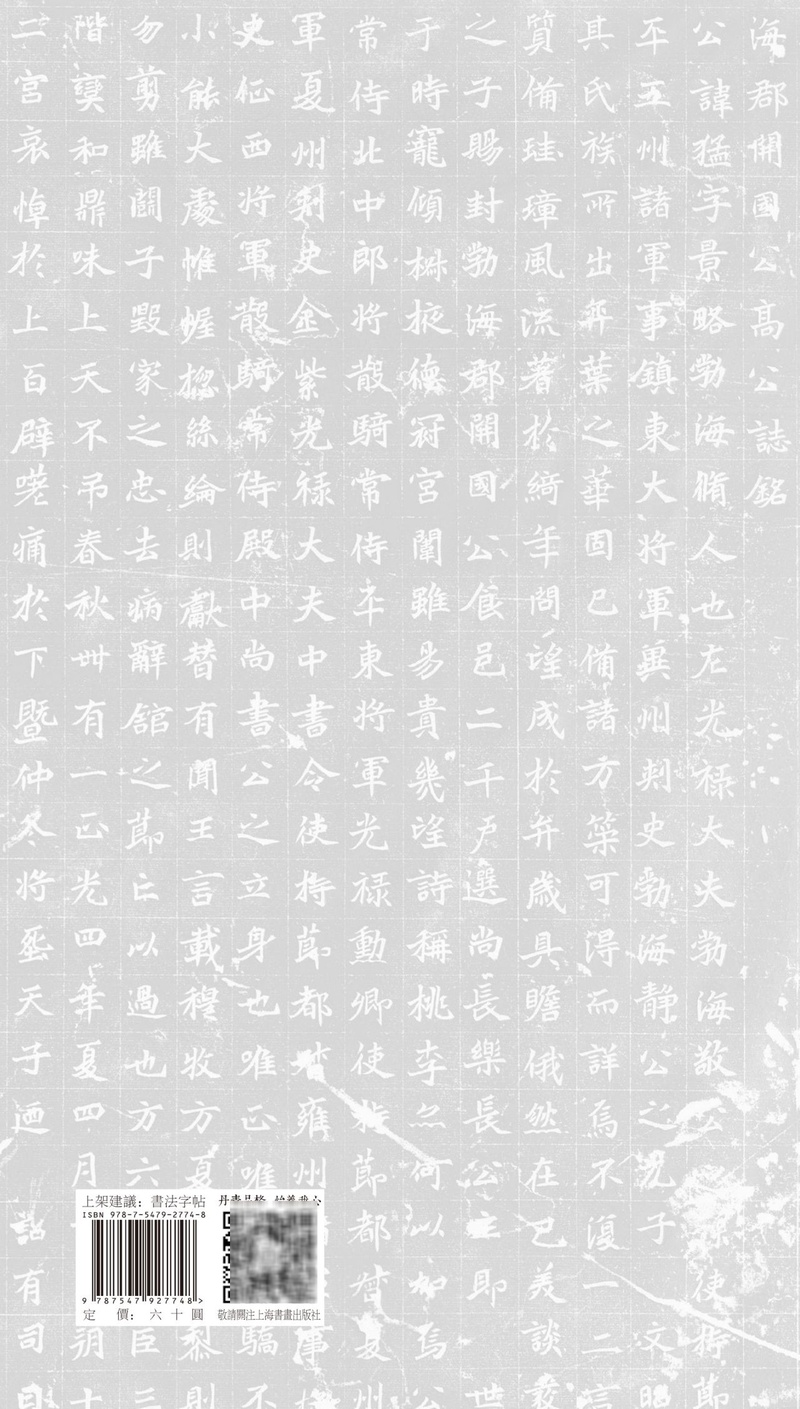 海郡開國公高公誌銘
公諱猛字景略勃海脩人也左光祿大夫勃海敬公
平五州諸軍事鎮東大將軍冀州刺史勃海靜公之兄子
其氏族所出弈葉之華固已備諸方策可得而詳焉不復一二言
質備珪璋風流著於綺年問望成於弁歲具瞻俄然在已美談
之子賜封勃海郡開國公食邑二千戶選尚長樂長公主即世
于時寵傾椒掖德冠宮闈雖易貴幾望詩稱桃李無何以加焉公
常侍北中郎將散騎常侍平東將軍光祿勳卿使持節都督夏州
軍夏州刺史金紫光祿大夫中書令使持節都督雍州
史征西將軍散騎常侍殿中尚書公之立身也唯正唯
小能大處帷幄揔絲綸則獻替有聞王言載穆牧方夏
勿剪雖闘子毀家之忠去病辭舘之節亡以過也方六
階變和鼎味上天不吊春秋卌有一正光四年夏四月
二宮哀悼於上百辟嗟痛於下暨仲冬將窆天子迺
有司
上架建議：書法字帖
ISBN 978-7-5479-2774-8
9 787547 927748 >
定 價：六十圓
敬請關注上海書畫出版社